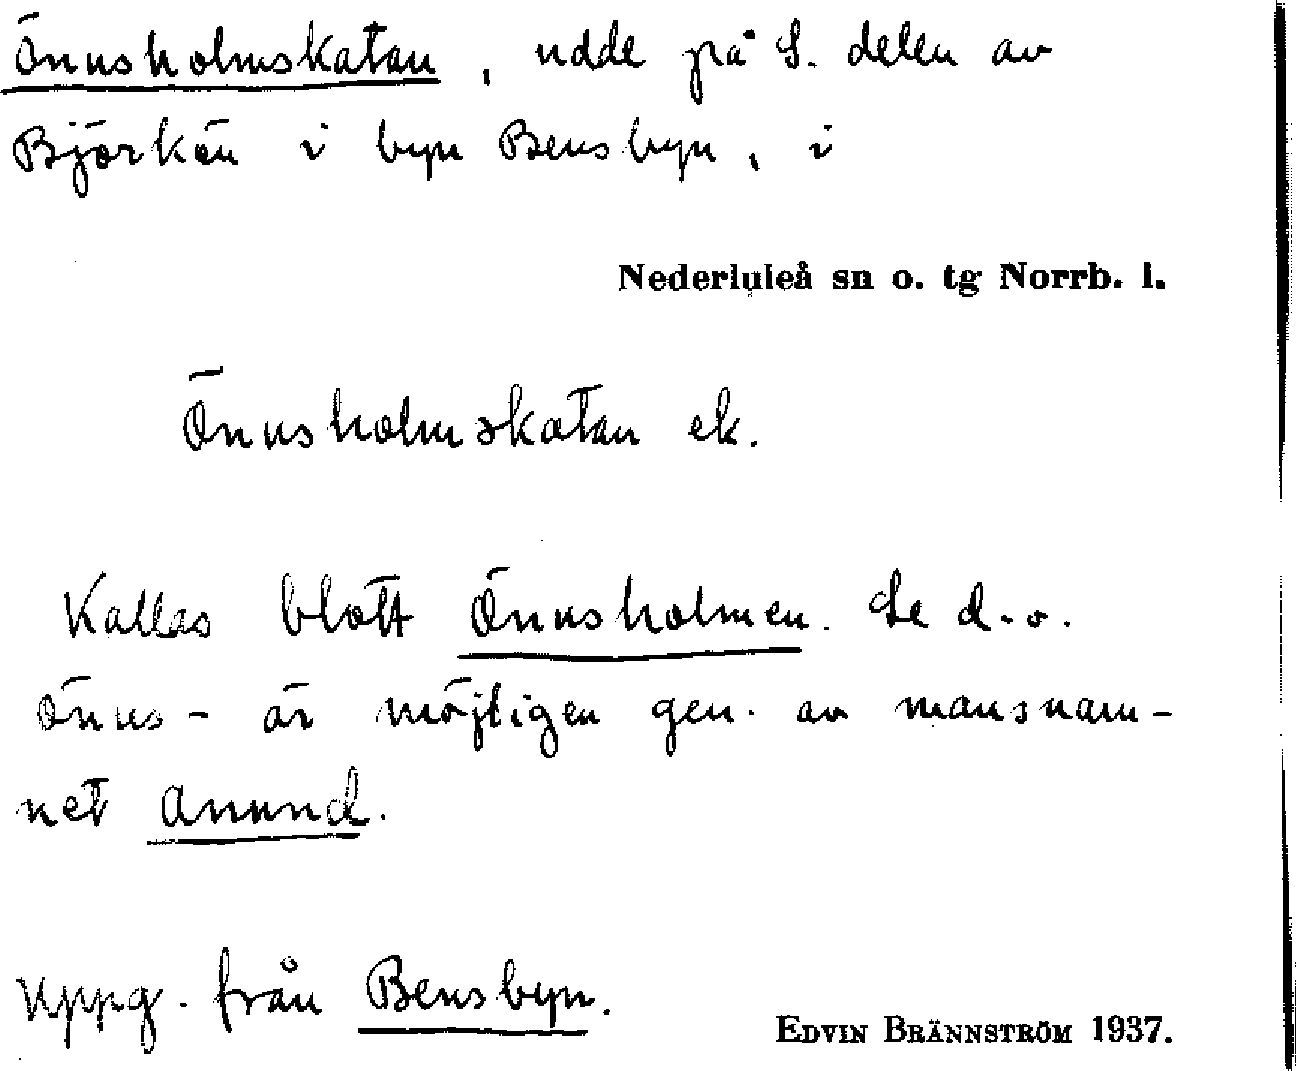 Önusholmskatan, udde på S. delen av
Björkön i byn Bensbyn, i
Nederluleå sn o. tg Norrb. l.
Önusholmskatan ek.
Kallas blott Önusholmen. Se d. o.
Önus- är möjligen gen. av mansnam-
net Anund.
Uppg. från Bensbyn.
EDVIN BRÄNNSTRÖM 1937.